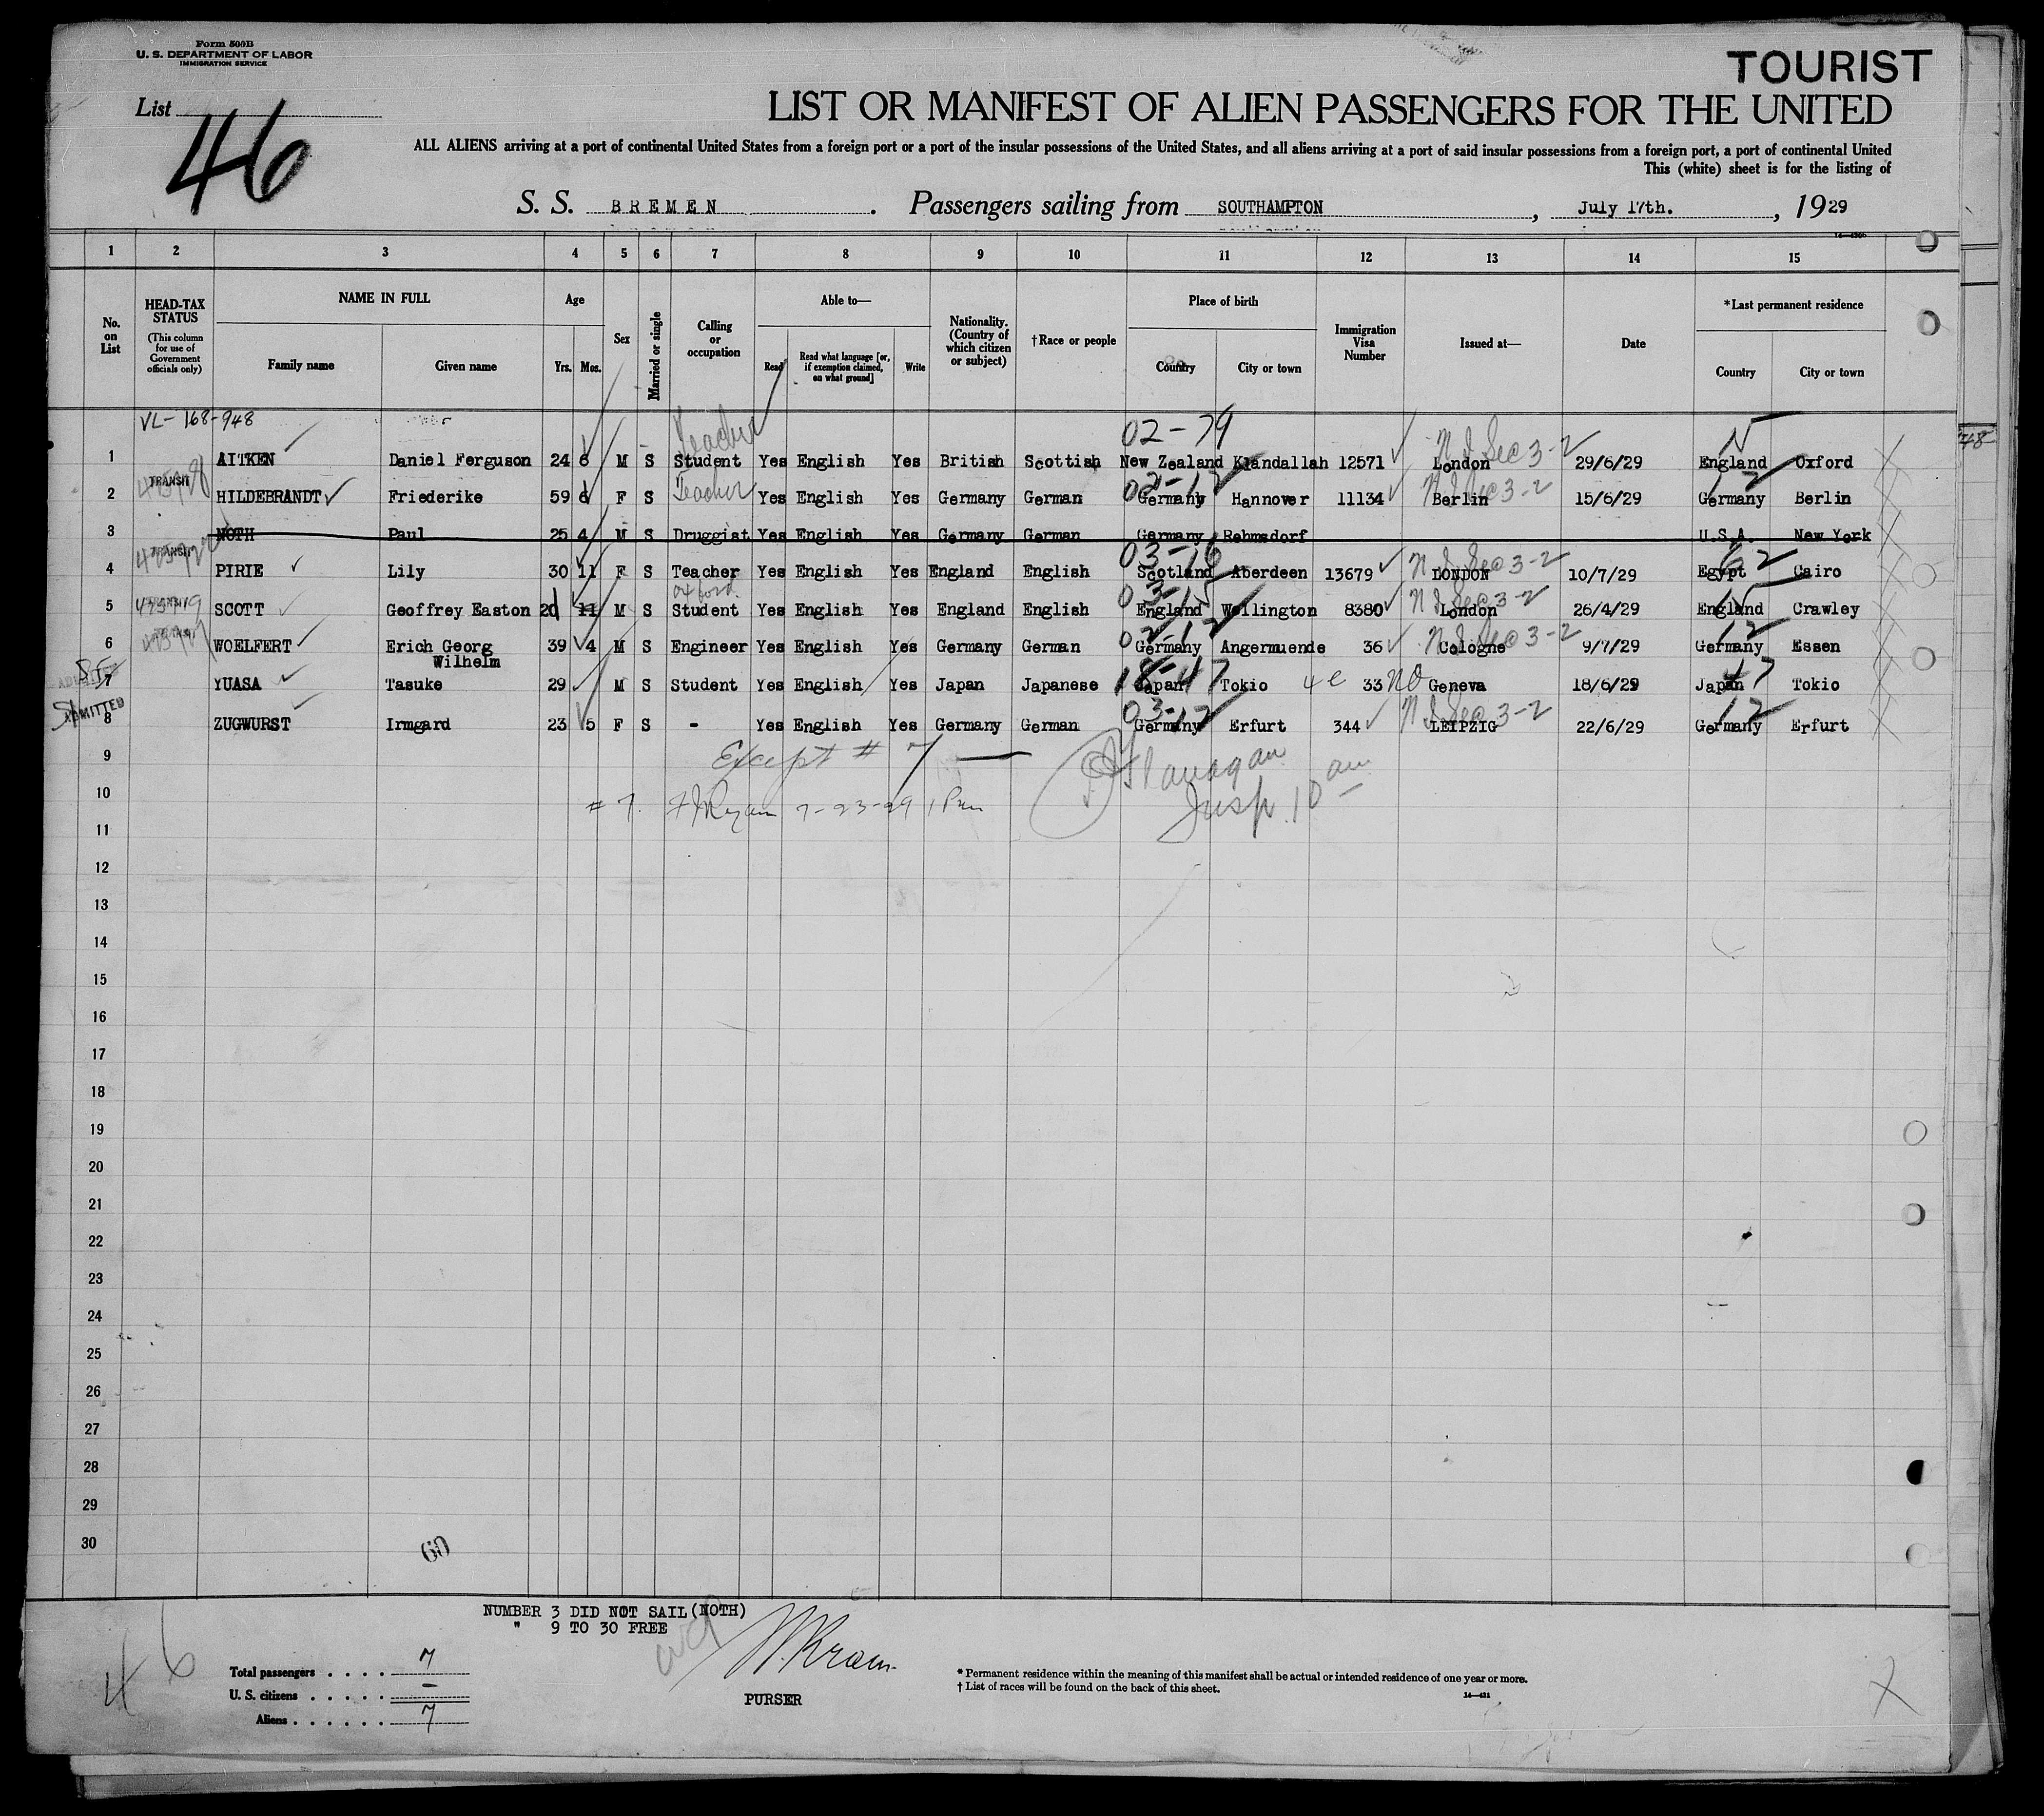 Form 500B
U. S. DEPARTMENT OF LABOR
IMMIGRATION SERVICE
TOURIST
List 46
LIST OR MANIFEST OF ALIEN PASSENGERS FOR THE UNITED
ALL ALIENS arriving at a port of continental United States from a foreign port or a port of the insular possessions of the United States, and all aliens arriving at a port of said insular possessions from a foreign port, a port of continental United
This (white) sheet is for the listing of
S. S. BREMEN. Passengers sailing from SOUTHAMPTON, July 17th., 1929
1 2 3 4 5 6 7 8 9 10 11 12 13 14 15
No. on List
HEAD-TAX STATUS
(This column for use of Government officials only)
NAME IN FULL
Family name Given name
Age
Yrs. Mos.
Sex
Married or single
Calling or occupation
Able to—
Read Read what language [or, if exemption claimed, on what ground] Write
Nationality. (Country of which citizen or subject)
†Race or people
Place of birth
Country City or town
Immigration Visa Number
Issued at—
Date
*Last permanent residence
Country City or town
VL-168-948
Teacher 02-79 N I Sec 3-2
1 AITKEN Daniel Ferguson 24 6 M S Student Yes English Yes British Scottish New Zealand Klandallah 12571 London 29/6/29 England Oxford
TRANSIT Teacher 02-12 N I Sec 3-2 12
2 HILDEBRANDT Friederike 59 6 F S Yes English Yes Germany German Germany Hannover 11134 Berlin 15/6/29 Germany Berlin
3 NOTH Paul 25 4 M S Druggist Yes English Yes Germany German Germany Rehmsdorf U.S.A. New York
TRANSIT 03-16 N I Sec 3-2 62
4 PIRIE Lily 30 11 F S Teacher Yes English Yes England English Scotland Aberdeen 13679 LONDON 10/7/29 Egypt Cairo
Oxford. 03-15 N I Sec 3-2 15
5 SCOTT Geoffrey Easton 20 11 M S Student Yes English Yes England English England Wellington 8380 London 26/4/29 England Crawley
02-12 N I Sec 3-2 12
6 WOELFERT Erich Georg Wilhelm 39 4 M S Engineer Yes English Yes Germany German Germany Angermuende 36 Cologne 9/7/29 Germany Essen
18-47 4e NO 47
7 YUASA Tasuke 29 M S Student Yes English Yes Japan Japanese Japan Tokio 33 Geneva 18/6/29 Japan Tokio
ADMITTED 03-12 N I Sec 3-2 12
8 ZUGWURST Irmgard 23 5 F S - Yes English Yes Germany German Germany Erfurt 344 LEIPZIG 22/6/29 Germany Erfurt
9 Except # 7 — Flanagan
10 # 7. Ryan 7-23-29 1 Pm Insp. 10 am
11
12
13
14
15
16
17
18
19
20
21
22
23
24
25
26
27
28
29
30
60
NUMBER 3 DID NOT SAIL (NOTH)
" 9 TO 30 FREE
46
Total passengers . . . . 7
U. S. citizens . . . . . –
Aliens . . . . . . 7
PURSER
* Permanent residence within the meaning of this manifest shall be actual or intended residence of one year or more.
† List of races will be found on the back of this sheet.
14—431